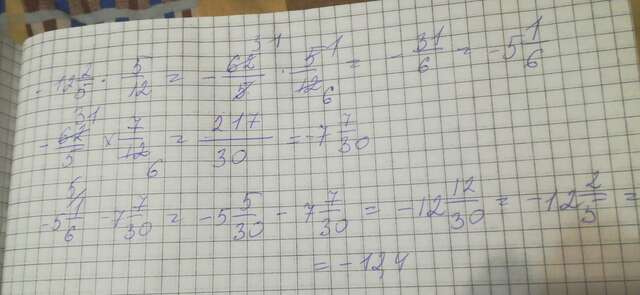 -12 2/5 · 5/12 = -62/5 · 5/12 = -31/6 = -5 1/6
-62/5 × 7/12 = 217/30 = -7 7/30
-5 1/6 - 7 7/30 = -5 5/30 - 7 7/30 = -12 12/30 = -12 2/5 =
= -12,4